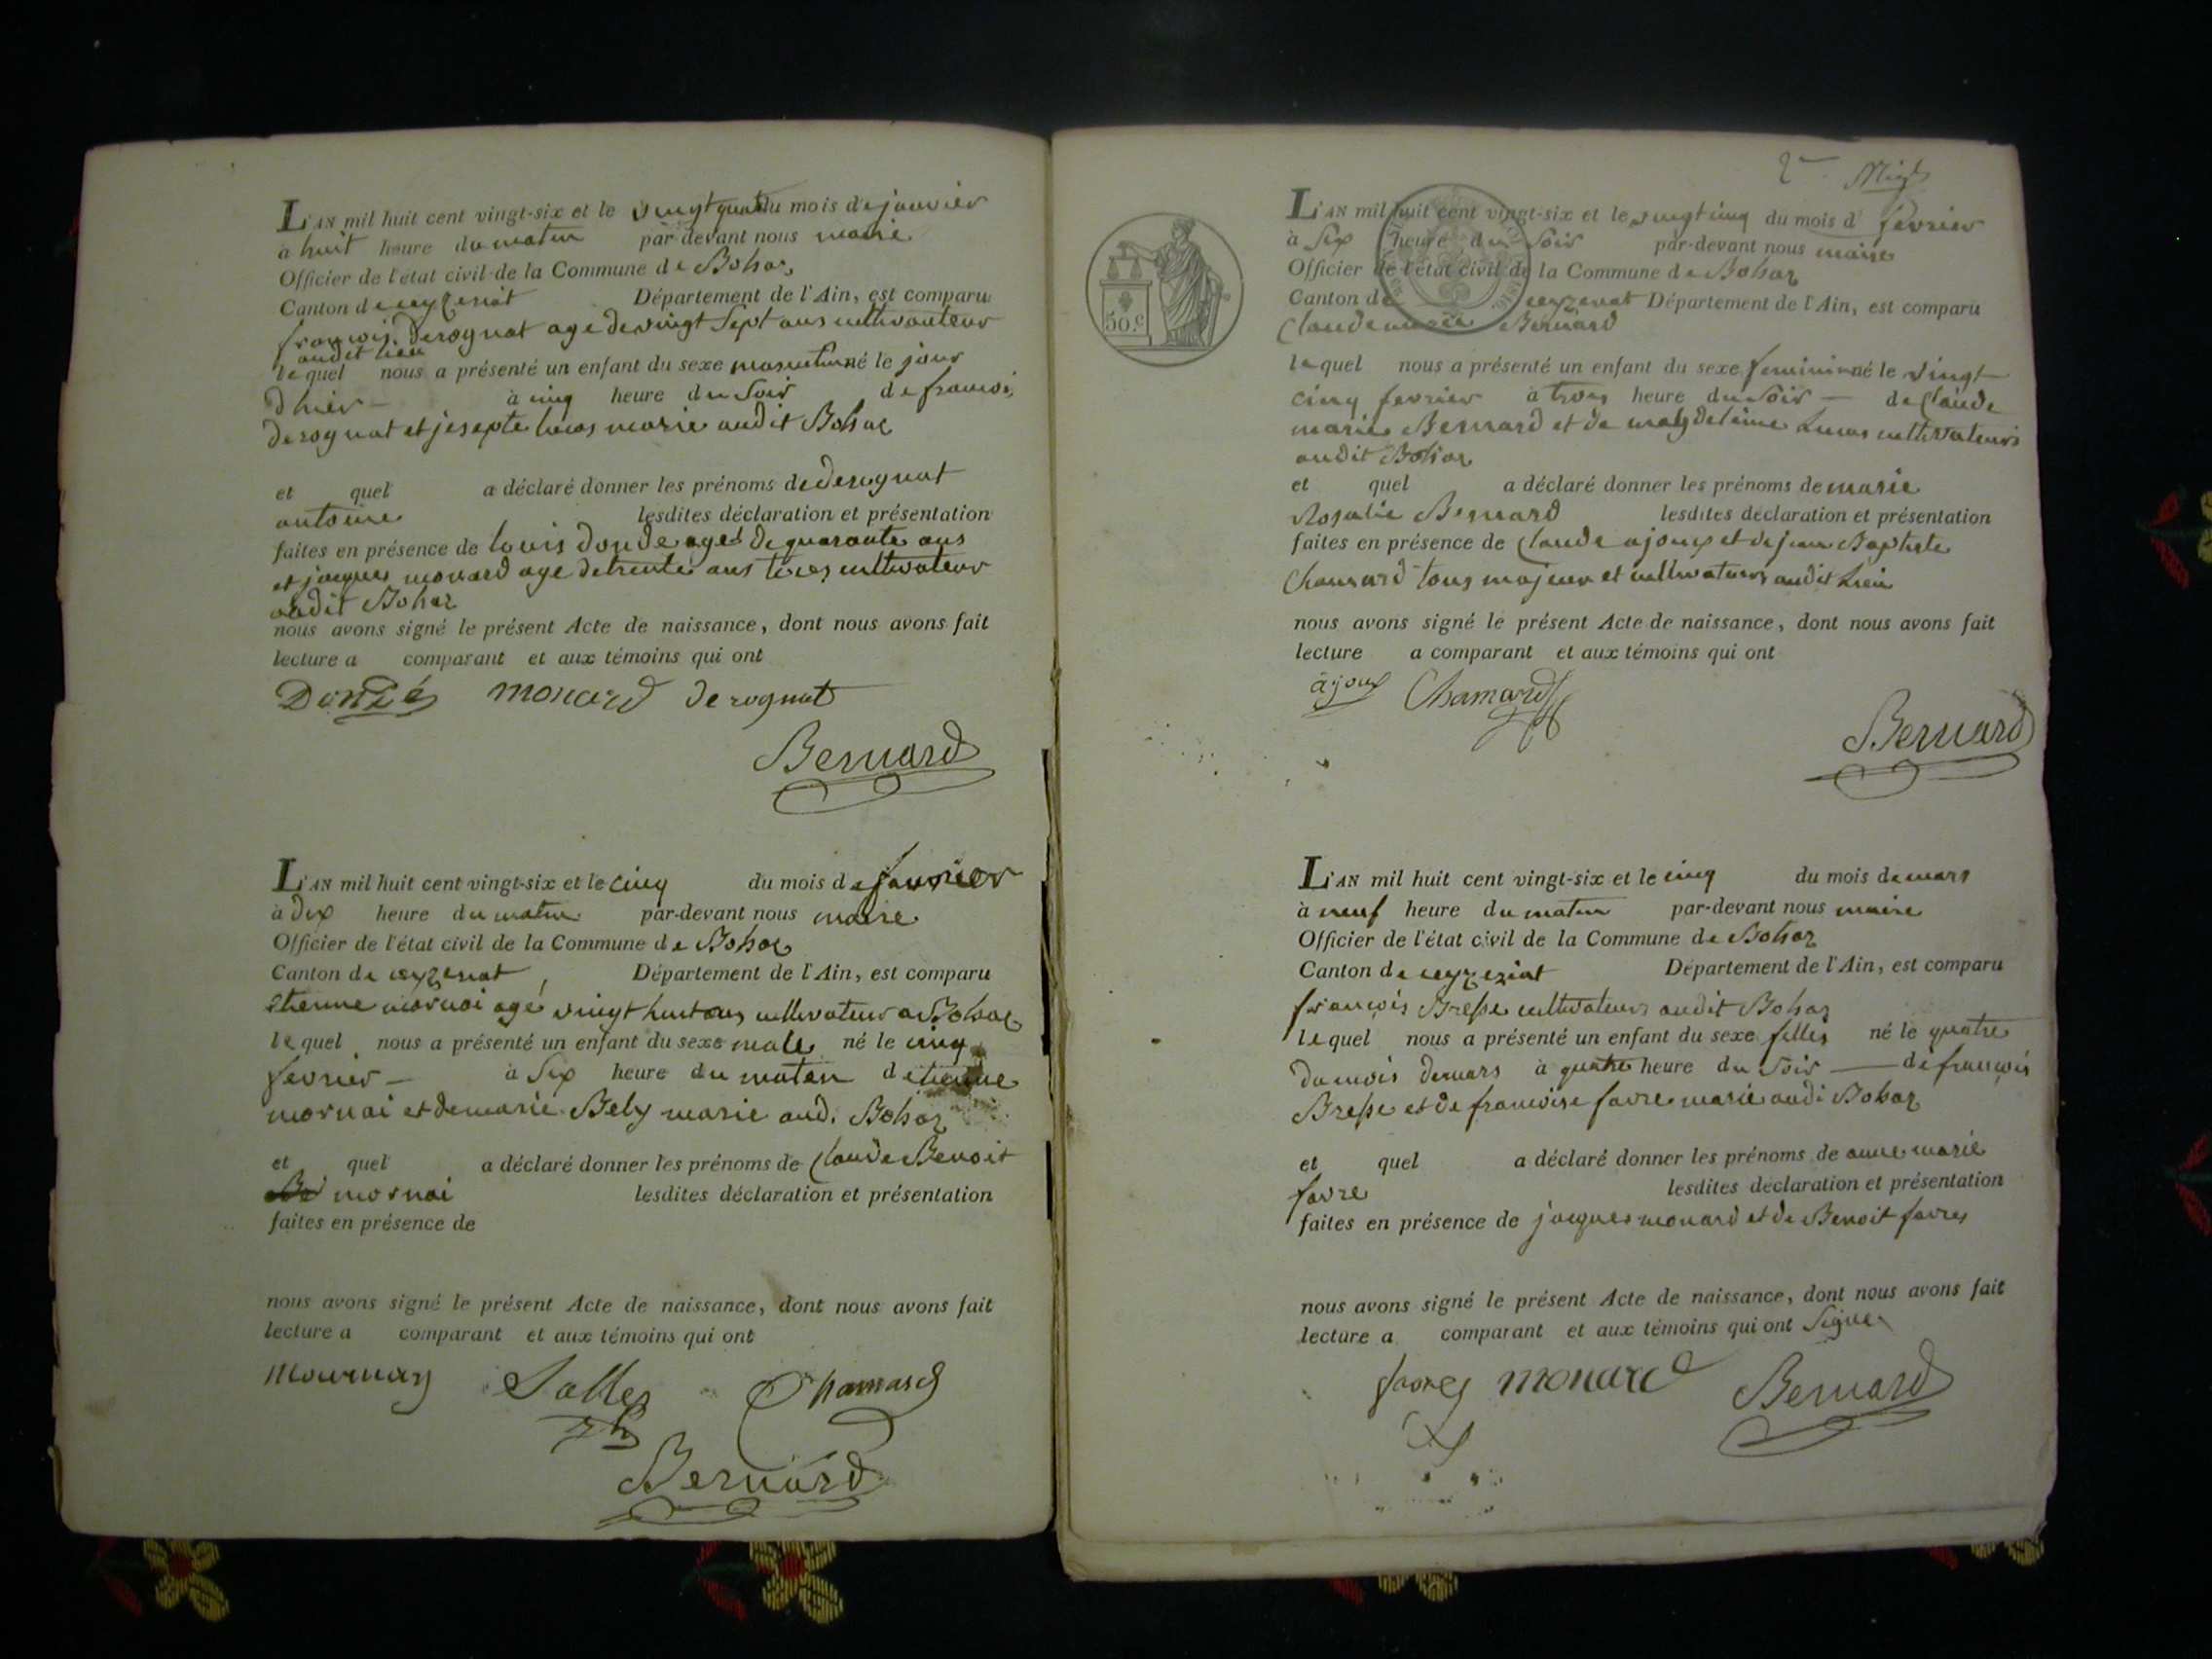 L'AN mil huit cent vingt-six et le vingt quatr du mois de janvier
à huit heure du matin par-devant nous maire
Officier de l'état civil de la Commune de Bohas
Canton de ceyzeriat Département de l'Ain, est comparu
françois derognat age de vingt sept ans cultivauteur
audit lieu
lequel nous a présenté un enfant du sexe masculin né le jour
d'hier à cinq heure du soir de francois
derognat et josepte lucas marie audit Bohas
et quel a déclaré donner les prénoms de derognat
antoine lesdites déclaration et présentation
faites en présence de louis donde agé de quarante ans
et jacques monard age de trente ans tous cultivateur
audit Bohas
nous avons signé le présent Acte de naissance, dont nous avons fait
lecture a comparant et aux témoins qui ont
Dondé monard derognat
Bernard
L'AN mil huit cent vingt-six et le cinq du mois de fevrier
à dix heure du matin par-devant nous maire
Officier de l'état civil de la Commune de Bohas
Canton de ceyzeriat, Département de l'Ain, est comparu
etienne mornai agé vingt huit ans cultivateur a Bohas
lequel nous a présenté un enfant du sexe male né le cinq
fevrier à six heure du matin d etienne
mornai et de marie Bely marie aud. Bohas
et quel a déclaré donner les prénoms de Claude Benoit
mornai lesdites déclaration et présentation
faites en présence de
nous avons signé le présent Acte de naissance, dont nous avons fait
lecture a comparant et aux témoins qui ont
Mournay Salles Chamard
Bernard
2
50.c
L'AN mil huit cent vingt-six et le vingt cinq du mois d fevrier
à six heure du soir par-devant nous maire
Officier de l'état civil de la Commune de Bohas
Canton de ceyzeriat Département de l'Ain, est comparu
Claude marie Bernard
lequel nous a présenté un enfant du sexe feminin né le vingt
cinq fevrier à trois heure du soir de Claude
marie Bernard et de magdeleine Lucas cultivateurs
audit Bohas
et quel a déclaré donner les prénoms de marie
Rosalie Bernard lesdites déclaration et présentation
faites en présence de Claude ajoux et de jean Baptiste
Chamard tous majeur et cultivateurs audit Lieu
nous avons signé le présent Acte de naissance, dont nous avons fait
lecture a comparant et aux témoins qui ont
ajoux Chamard
Bernard
L'AN mil huit cent vingt-six et le cinq du mois de mars
à neuf heure du matin par-devant nous maire
Officier de l'état civil de la Commune de Bohas
Canton de ceyzeriat Département de l'Ain, est comparu
françois Bresse cultivateur audit Bohas
lequel nous a présenté un enfant du sexe filles né le quatre
du mois de mars à quatre heure du soir de françois
Bresse et de francoise favre marie audi Bohas
et quel a déclaré donner les prénoms de anne marie
favre lesdites déclaration et présentation
faites en présence de jacques monard et de Benoit favre
nous avons signé le présent Acte de naissance, dont nous avons fait
lecture a comparant et aux témoins qui ont signe
favre monard Bernard